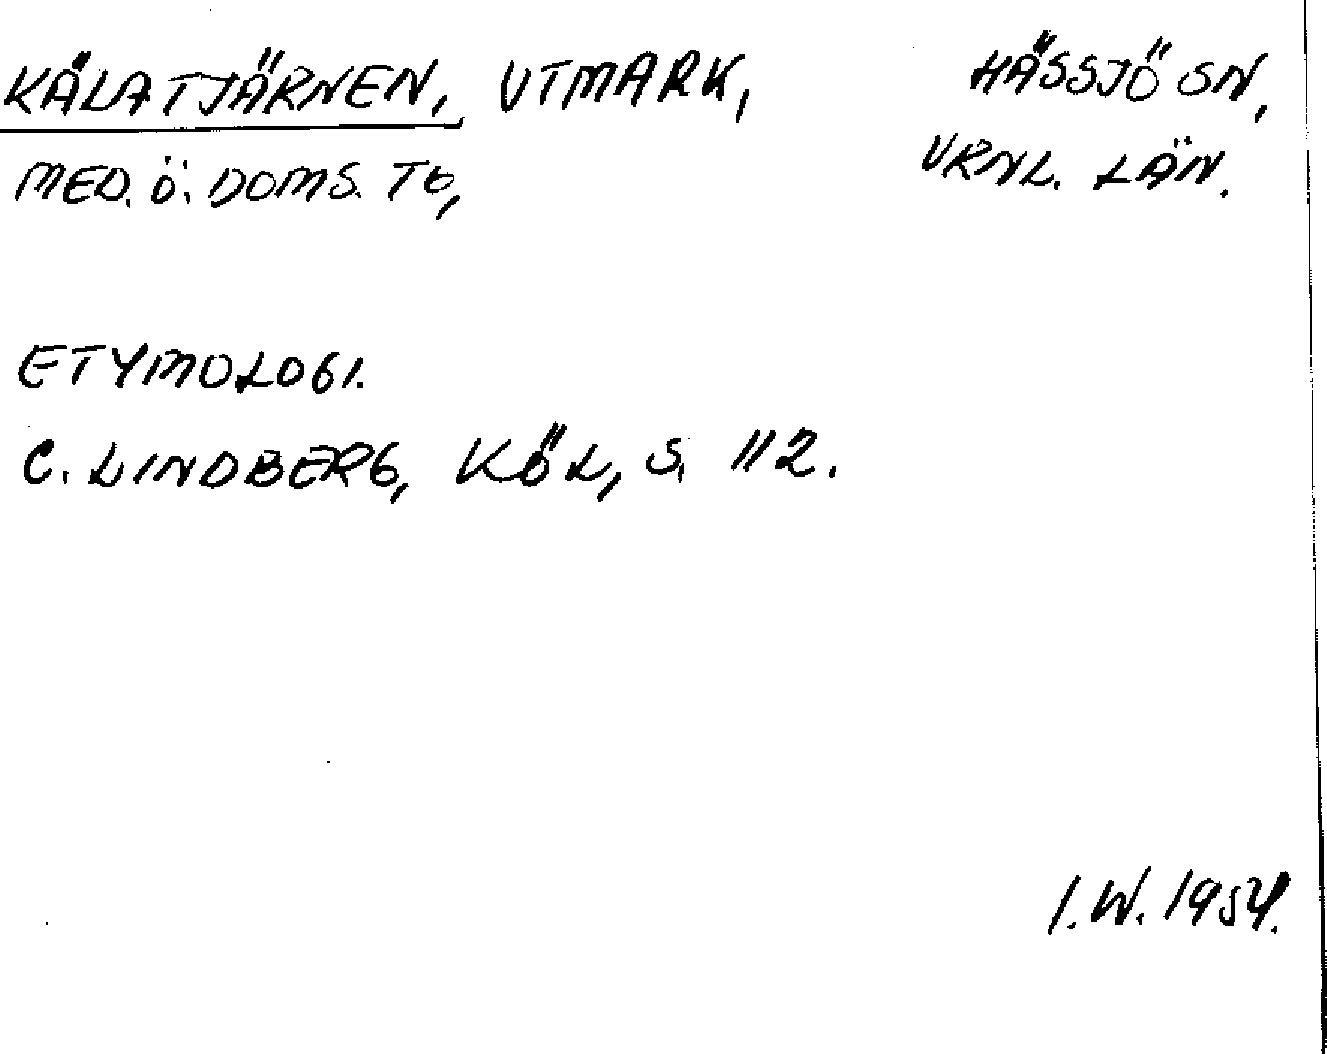 KÄLATJÄRNEN, UTMARK, HÄSSJÖ SN,
MED. Ö. DOMS. TG, VRNL. LÄN.
ETYMOLOGI.
C. LINDBERG, KÖL, S. 112.
I.W. 1954.